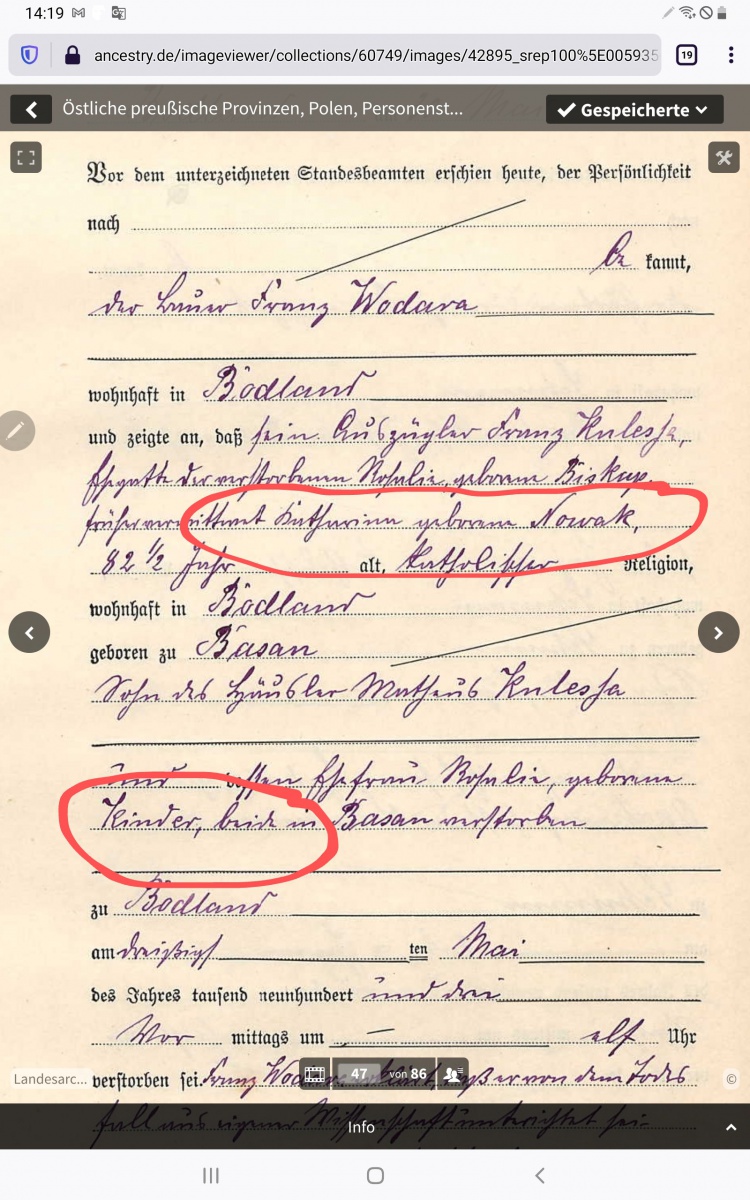 14:19
ancestry.de/imageviewer/collections/60749/images/42895_srep100%5E005935
19
Östliche preußische Provinzen, Polen, Personenst...
Gespeicherte
Vor dem unterzeichneten Standesbeamten erschien heute, der Persönlichkeit
nach
be kannt,
der Bauer Franz Wodara
wohnhaft in Bodland
und zeigte an, daß sein Auszügler Franz Kulessa,
Ehegatte der verstorbenen Rosalie, geborene Biskup,
früher verwittwet Katharina geborene Nowak,
82 1/2 Jahr alt, katholischer Religion,
wohnhaft in Bodland
geboren zu Basan
Sohn des Häusler Matheus Kulessa
und dessen Ehefrau Rosalie, geborene
Kinder, beide in Basan verstorben
zu Bodland
am dreißigs ten Mai
des Jahres tausend neunhundert und drei
Vor mittags um elf Uhr
Landesarc...
47 von 86
verstorben sei. Franz daß er von dem Todes
©
fall aus eigener Wissenschaft unterrichtet sei.
Info